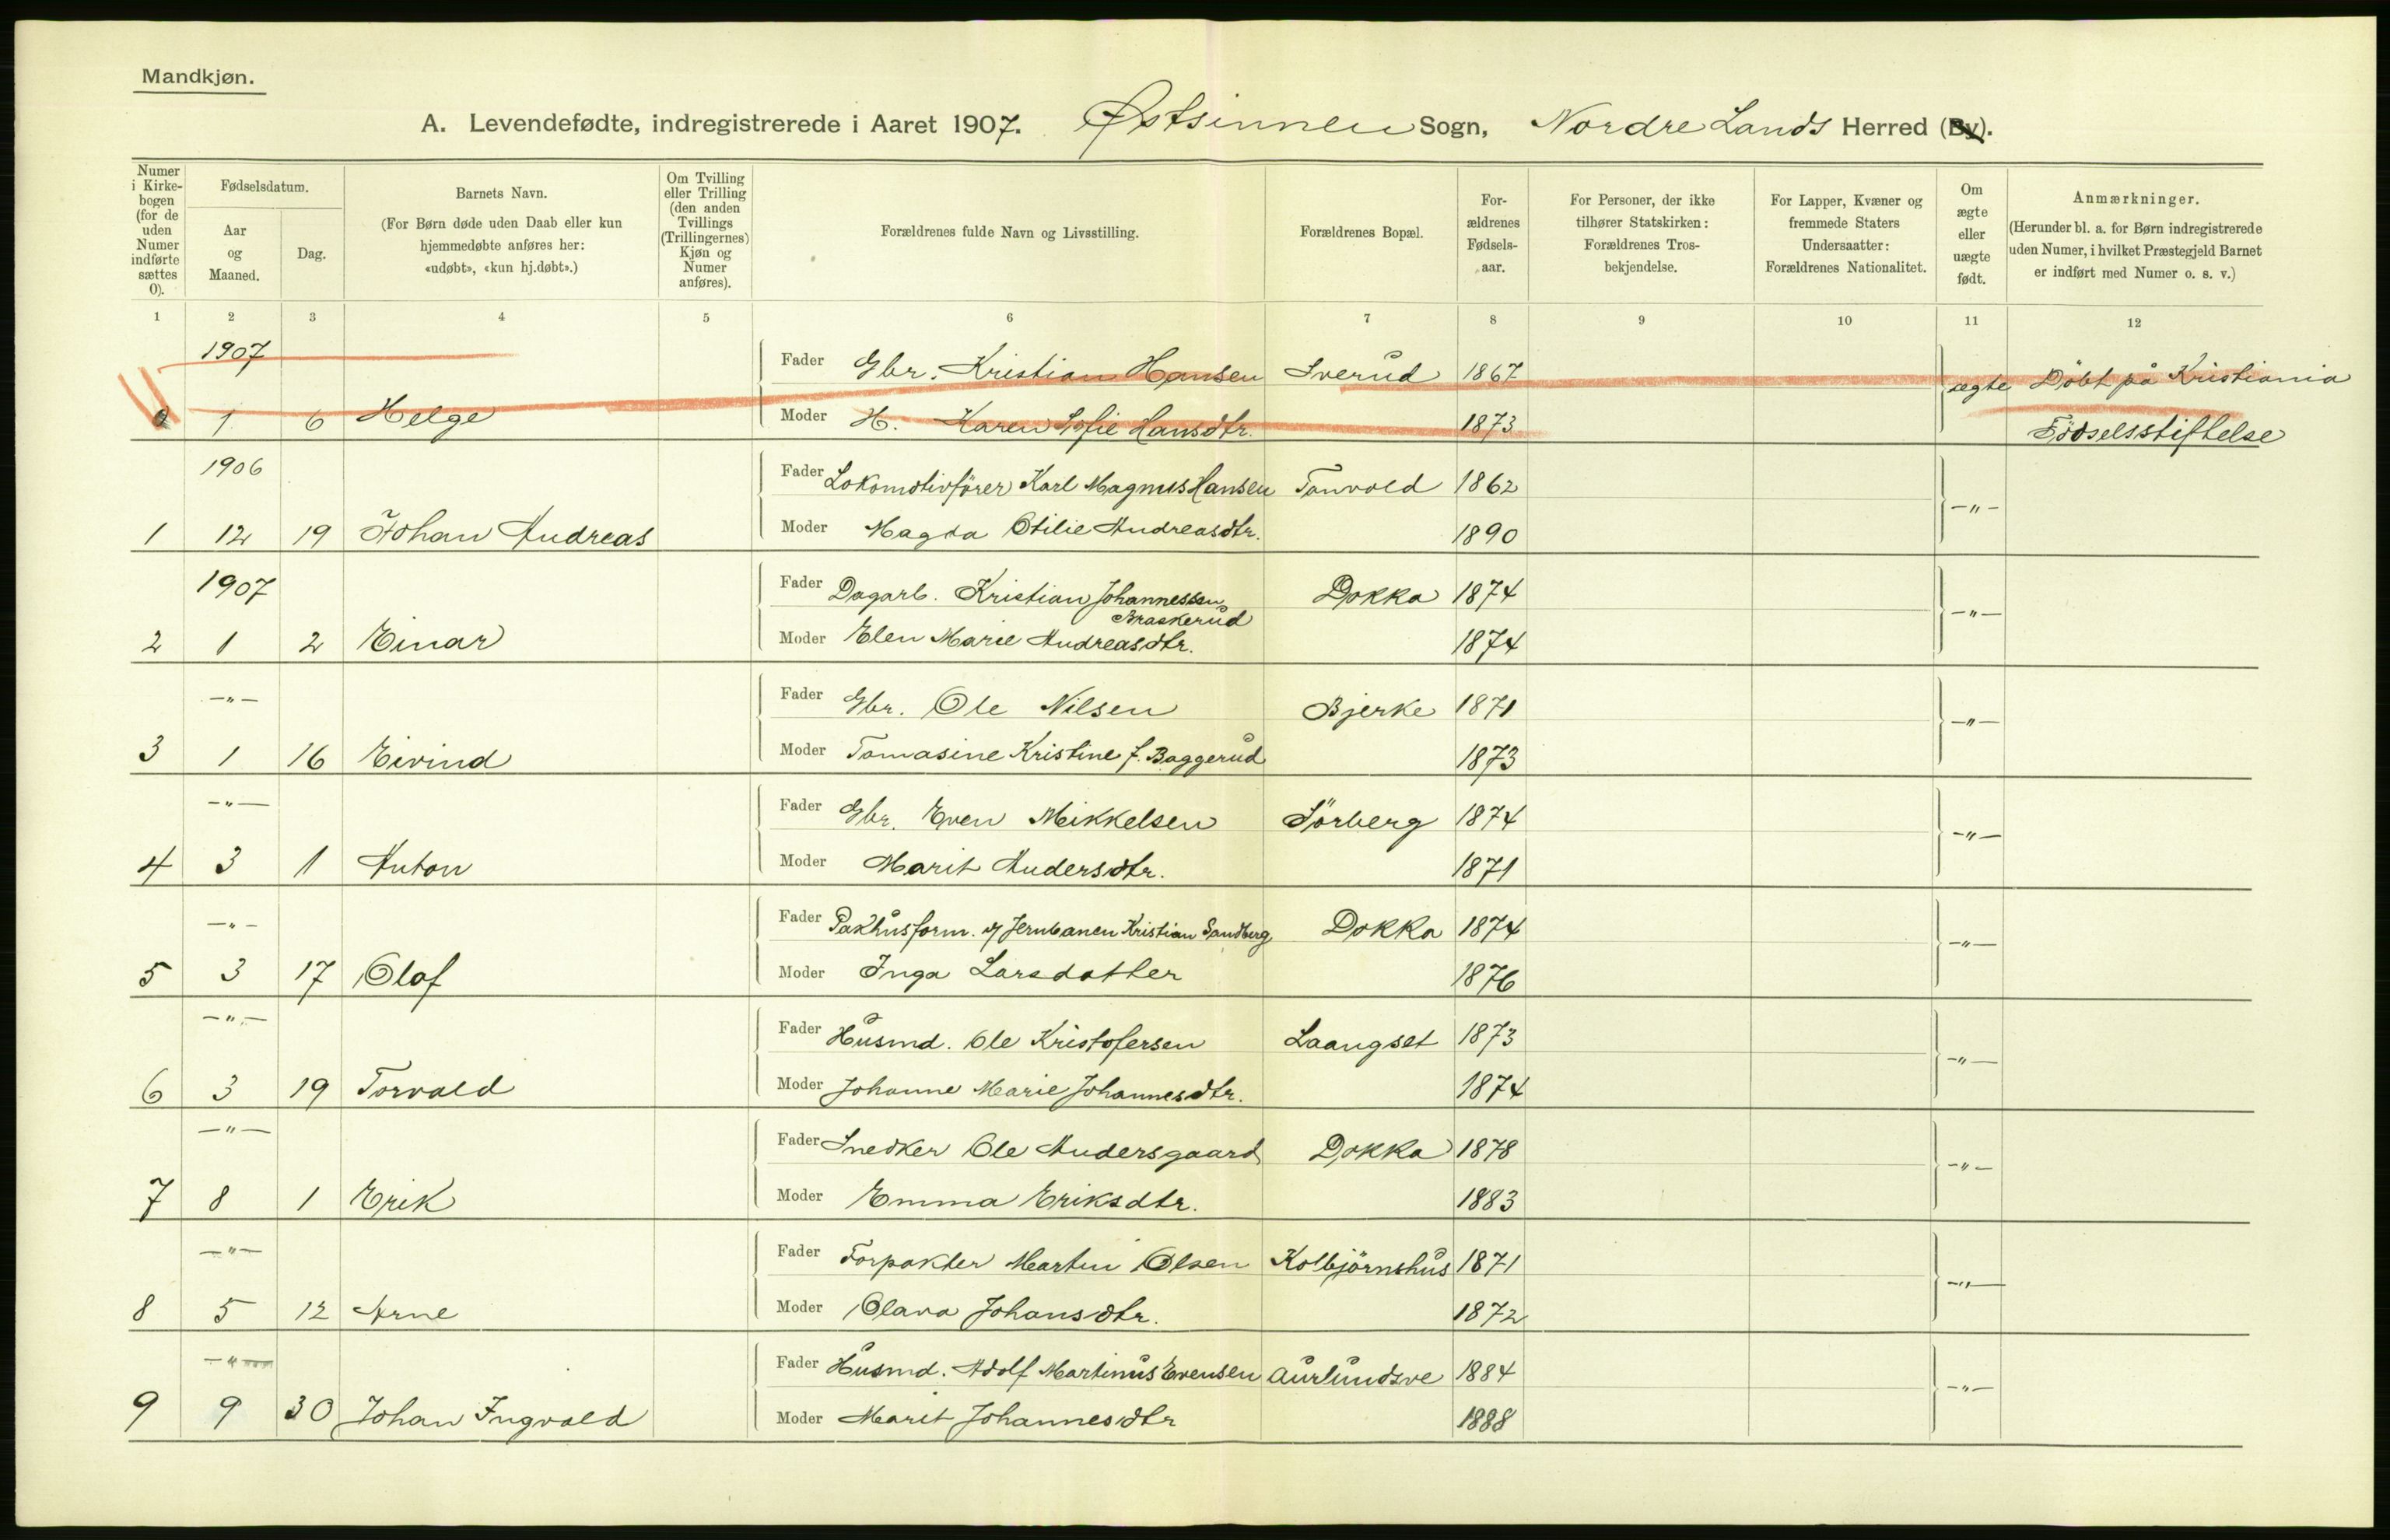 Mandkjøn.
A. Levendefødte, indregistrerede i Aaret 1907. Østsinnen Sogn, Nordre Lands Herred (By).
Numer i Kirke- bogen (for de uden Numer indførte sættes 0).
Fødselsdatum.
Aar og Maaned.
Dag.
Barnets Navn.
(For Børn døde uden Daab eller kun hjemmedøbte anføres her: «udøbt», «kun hj.døbt».)
Om Tvilling eller Trilling (den anden Tvillings (Trillingernes) Kjøn og Numer anføres).
Forældrenes fulde Navn og Livsstilling.
Forældrenes Bopæl.
For- ældrenes Fødsels- aar.
For Personer, der ikke tilhører Statskirken: Forældrenes Tros- bekjendelse.
For Lapper, Kvæner og fremmede Staters Undersaatter: Forældrenes Nationalitet.
Om ægte eller uægte født.
Anmærkninger.
(Herunder bl. a. for Børn indregistrerede uden Numer, i hvilket Præstegjeld Barnet er indført med Numer o. s. v.)
1 2 3 4 5 6 7 8 9 10 11 12
1907 Fader Gbr. Kristian Hansen Sverud 1867 ægte Döbt på Kristiania
0 1 6 Helge Moder H. Karen Sofie Hansdtr. 1873 Födselsstiftelse
1906 Fader Lokomotivförer Karl Magnus Hansen Tonvold 1862 -"-
1 12 19 Johan Andreas Moder Magda Otilie Andreasdtr. 1890
1907 Fader Dagarb. Kristian Johannessen Braskerud Dokka 1874 -"-
2 1 2 Einar Moder Elen Marie Andreasdtr. 1874
-"- Fader Gbr. Ole Nilsen Bjerke 1871 -"-
3 1 16 Eivind Moder Tomasine Kristine f. Baggerud 1873
-"- Fader Gbr. Even Mikkelsen Sörberg 1874 -"-
4 3 1 Anton Moder Marit Andersdtr. 1871
-"- Fader Pakhusform. v/ Jernbanen Kristian Sandberg Dokka 1874 -"-
5 3 17 Olaf Moder Inga Larsdatter 1876
-"- Fader Husmd. Ole Kristofersen Laangset 1873 -"-
6 3 19 Torvald Moder Johanne Marie Johannesdtr. 1874
-"- Fader Snedker Ole Andersgaard Dokka 1878 -"-
7 8 1 Erik Moder Emma Eriksdtr. 1883
-"- Fader Forpakter Martin Olsen Kolbjörnshus 1871 -"-
8 5 12 Arne Moder Olava Johansdtr. 1872
-"- Fader Husmd. Adolf Martinus Evensen Aurlundsve 1884 -"-
9 9 30 Johan Ingvald Moder Marit Johannesdtr 1888